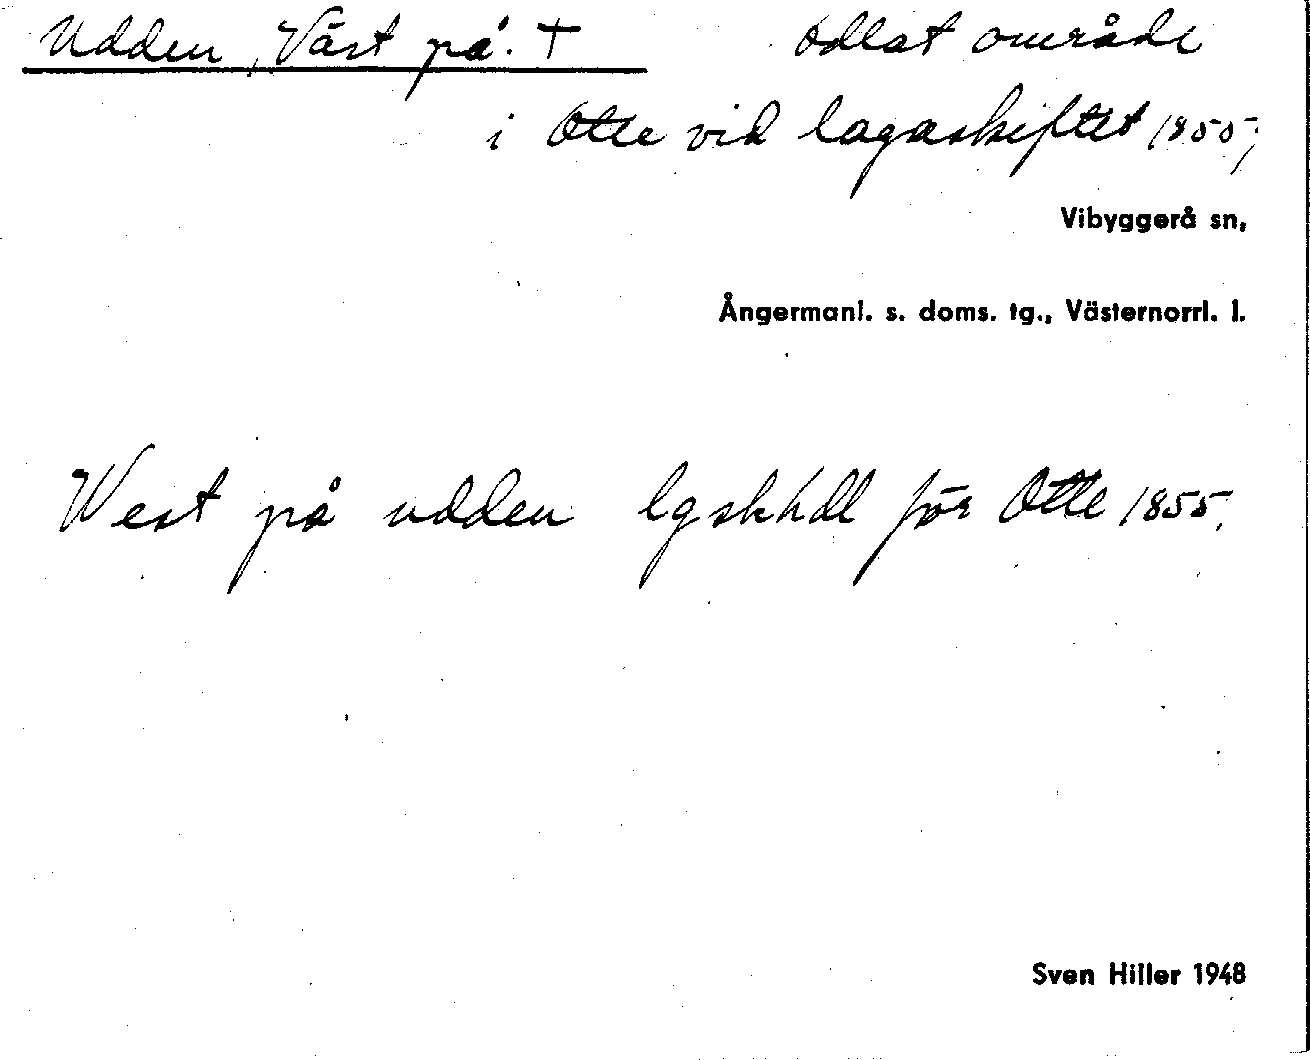 Udden, Väst på. † odlat område
i Otte vid lagaskiftet 1855;
Vibyggerå sn,
Ångermanl. s. doms. tg., Västernorrl. l.
West på udden lgskhdl för Otte 1855,
Sven Hiller 1948